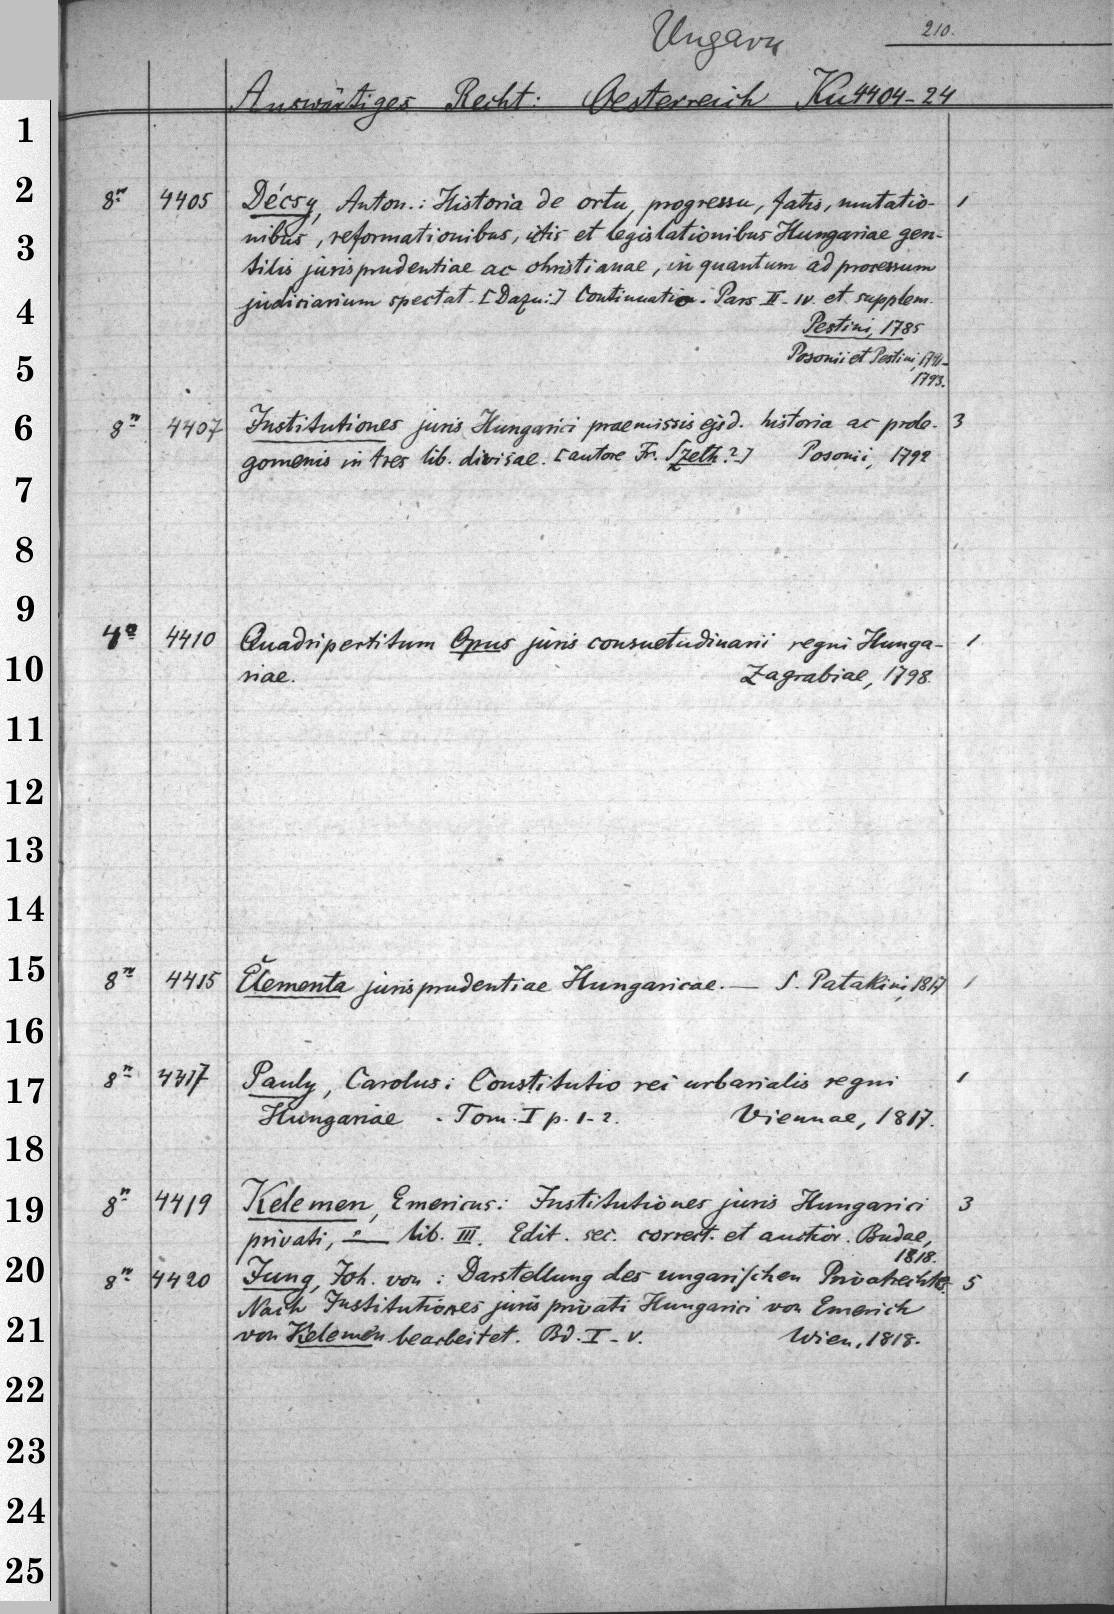 Ungarn
210.
Auswärtiges Recht: Oesterreich Ku 4404-24
1
2
3
4
5
6
7
8
9
10
11
12
13
14
15
16
17
18
19
20
21
22
23
24
25
8° 4405 Décsy, Anton.: Historia de ortu progressu, fatis, mutatio- 1
nibus, reformationibus, itis et legislationibus Hungariae gen-
tilis jurisprudentiae ac christianae, in quantum ad processum
judiciarium spectat. [Dazu:] Continuatio. Pars II-IV. et supplem.
Pestini, 1785
Posonii et Pestini, 1791-
1793.
8° 4407 Institutiones juris Hungarici praemissis ejsd. historia ac prole- 3
gomenis in tres lib. divisae. [autore Fr. Szeth?] Posonii, 1792
4° 4410 Quadripertitum Opus juris consuetudinarii regni Hunga- 1
riae. Zagrabiae, 1798.
8° 4415 Elementa jurisprudentiae Hungaricae. — S. Patakini, 1817 1
8° 4317 Pauly, Carolus: Constitutio rei urbarialis regni 1
Hungariae. Tom. I p. 1-2. Viennae, 1817.
8° 4419 Kelemen, Emericus: Institutiones juris Hungarici 3
privati, — lib. III. Edit. sec. correct. et auctior. Budae,
1818.
8° 4420 Jung, Joh. von: Darstellung des ungarischen Privatrechte. 5
Nach Institutiones juris privati Hungarici von Emerich
von Kelemen bearbeitet. Bd. I-V. Wien, 1818.